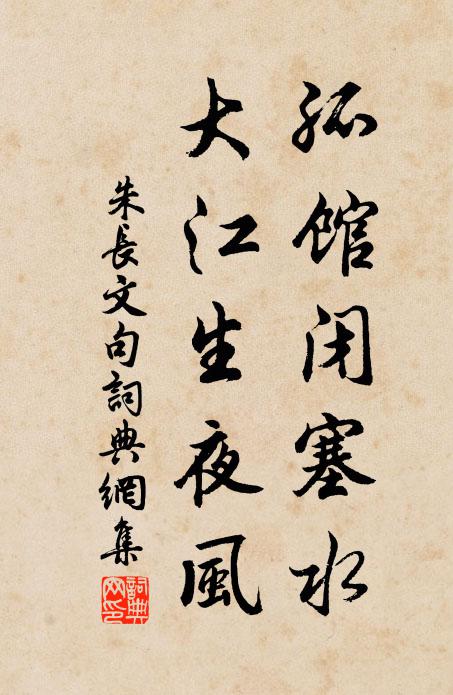 孤館閉塞水
大江生夜風
朱長文句詞典網集
詞典網印